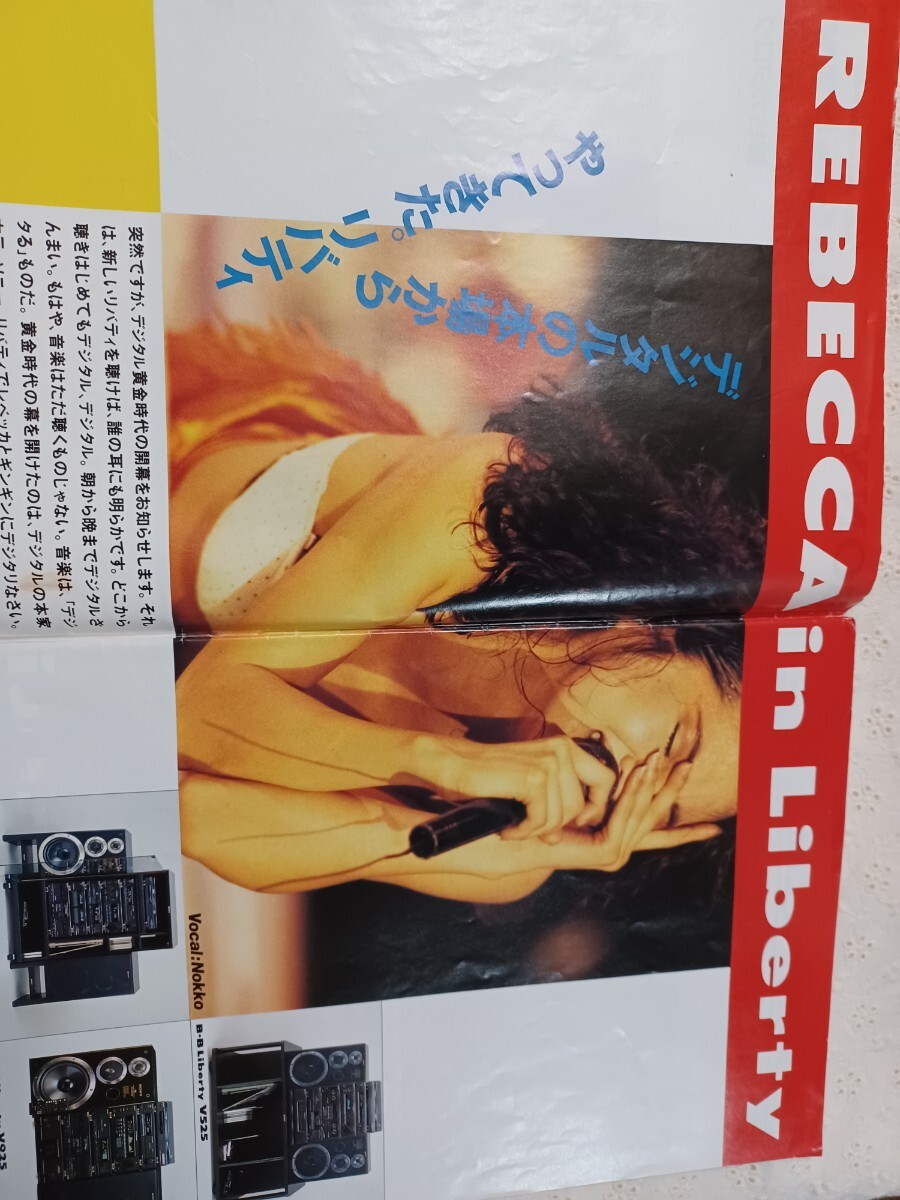 REBECCA in Liberty
デジタルの本場から
やってきた。リバティ
突然ですが、デジタル黄金時代の開幕をお知らせします。それ
は、新しいリバティを聴けば、誰の耳にも明らかです。どこから
聴きはじめてもデジタル、デジタル。朝から晩までデジタルさ
んまい。もはや、音楽はただ聴くものじゃない。音楽は、「デジ
タる」ものだ。黄金時代の幕を開けたのは、デジタルの本家
リバティでレベッカとギンギンにデジタリなさい。
Vocal:Nokko
B·B Liberty V525
V925